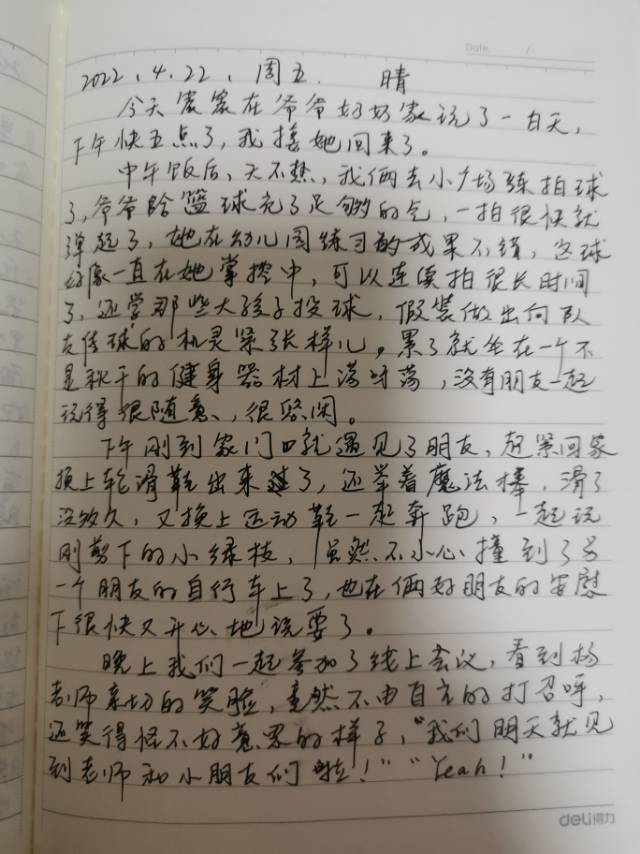 Date. /
2022.4.22,周五. 晴
今天宸宸在爷爷奶奶家玩了一白天,
下午快五点了,我接她回来了。
中午饭后,天不热,我俩去小广场练拍球
了,爷爷给篮球充了足够的气,一拍很快就
弹起了,她在幼儿园练习的成果不错,这球
好像一直在她掌控中,可以连续拍很长时间
了,还学那些大孩子投球,假装做出向队
友传球的机灵紧张样儿。累了就坐在一个不
是秋千的健身器材上荡呀荡,没有朋友一起
玩得很随意,很悠闲。
下午刚到家门口就遇见了朋友,赶紧回家
换上轮滑鞋出来了,还举着魔法棒,滑了
没多久,又换上运动鞋一起奔跑,一起玩
刚剪下的小绿枝,虽然不小心撞到了另
一个朋友的自行车上了,也在俩好朋友的安慰
下很快又开心地玩耍了。
晚上我们一起参加了线上会议,看到杨
老师亲切的笑脸,竟然不由自主的打召呼,
还笑得怪不好意思的样子,"我们明天就见
到老师和小朋友们啦!""Yeah!"
deli得力